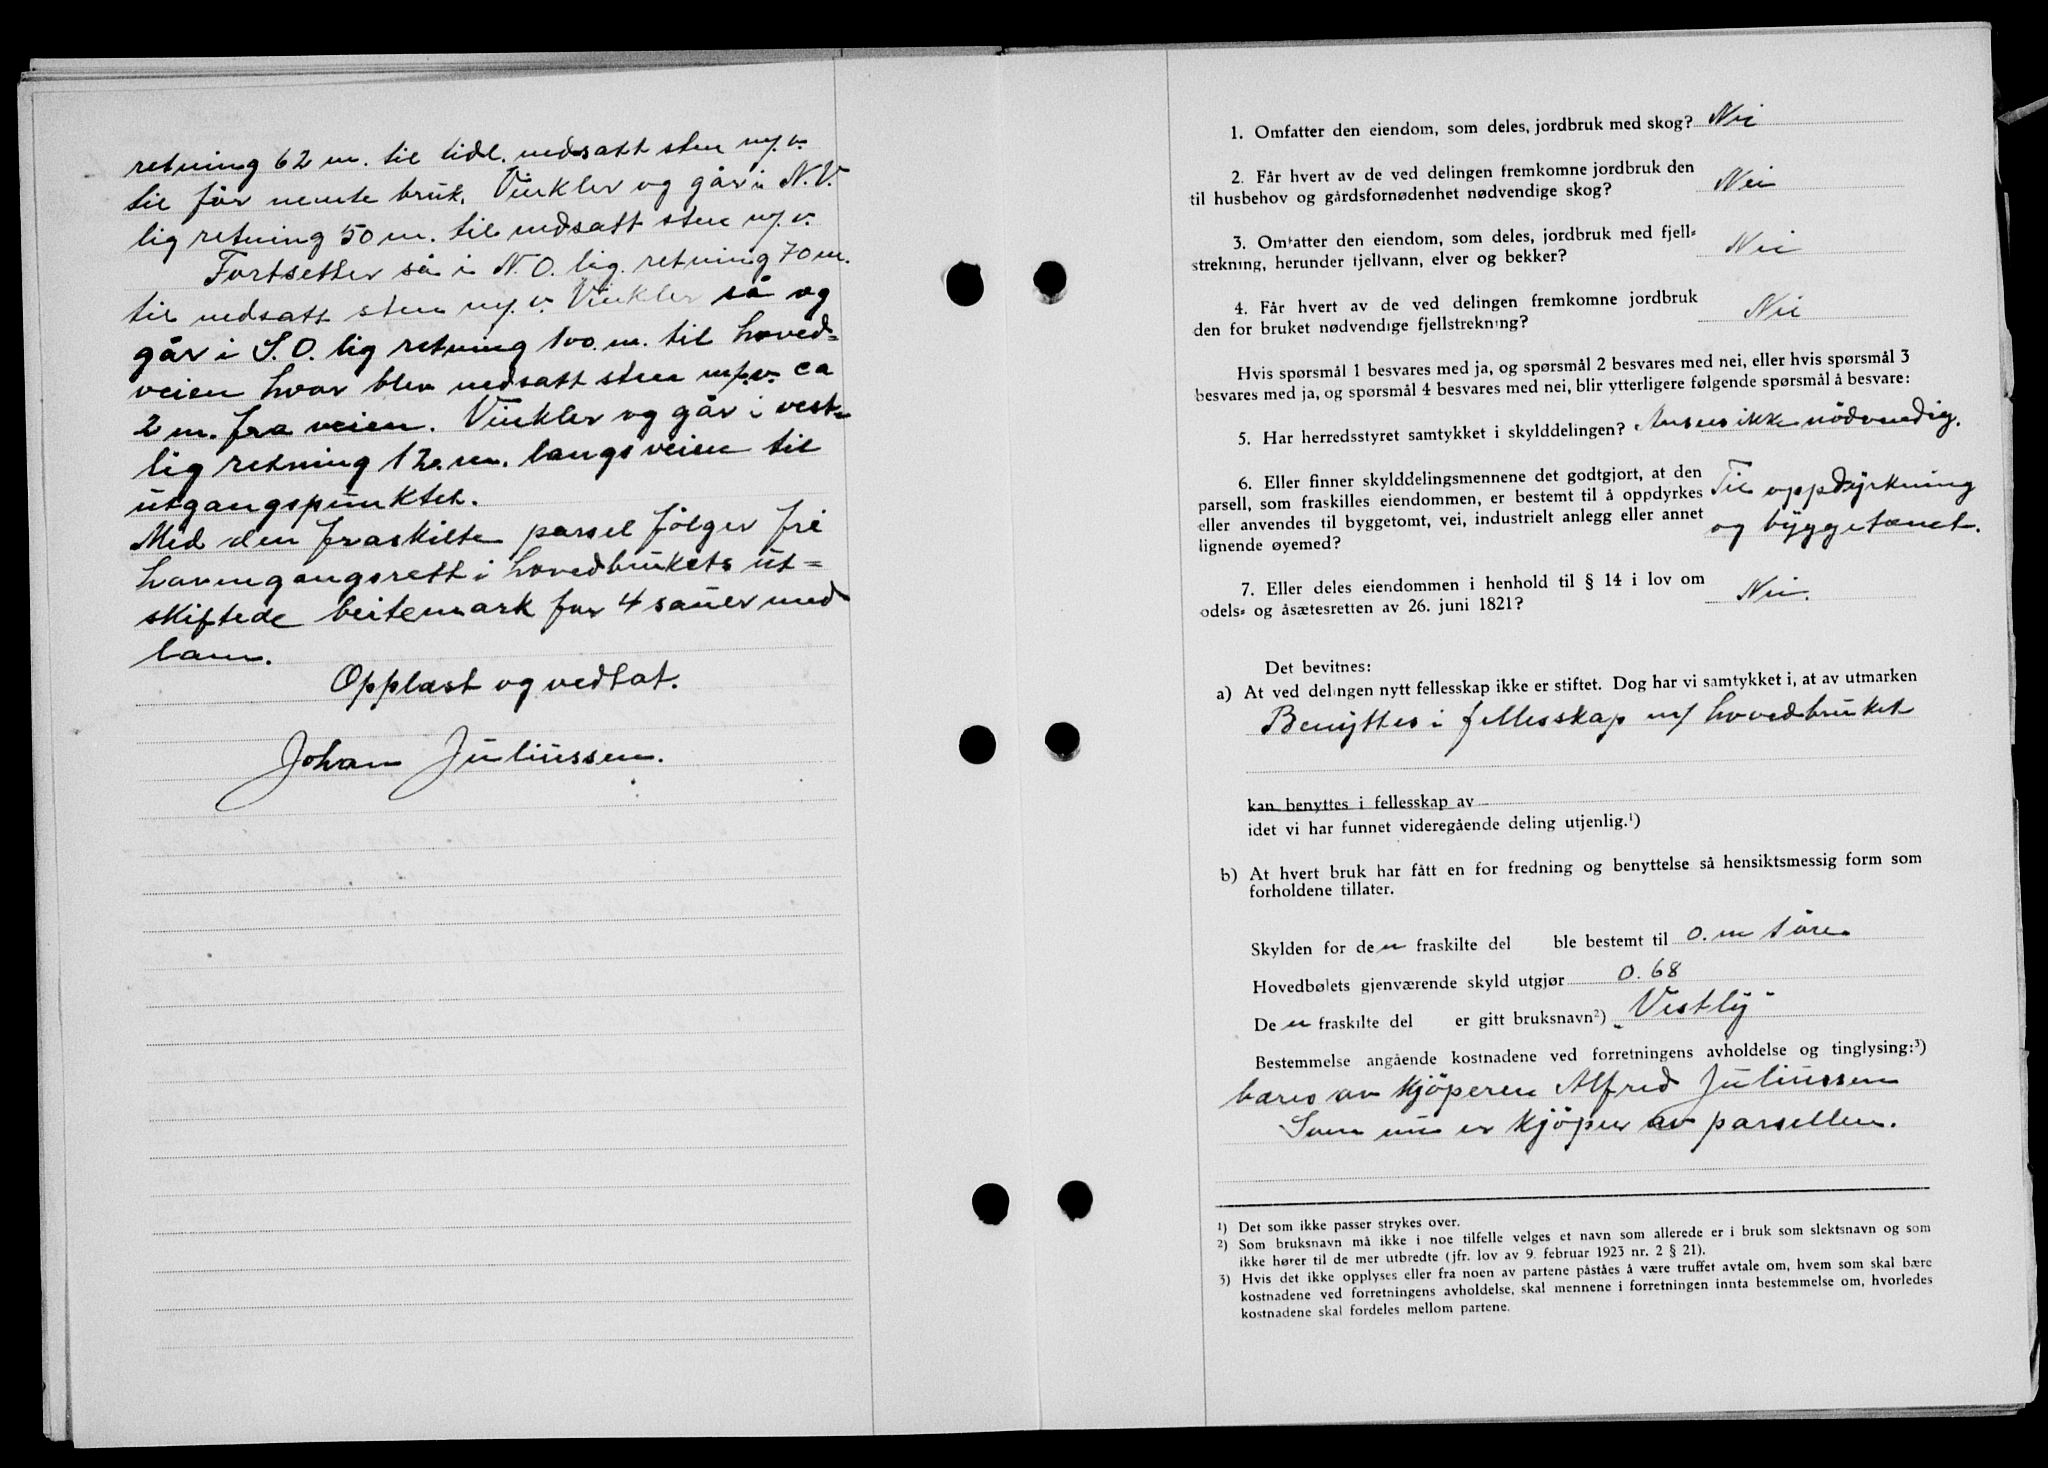 retning 62 m. til tidl. nedsatt sten m/v.
til før nevnte bruk. Vinkler og går i N.V.
lig retning 50 m. til nedsatt sten m/v.
Fortsetter så i N.O. lig. retning 70 m.
til nedsatt sten m/v. Vinkler så og
går i S.O. lig retning 100. m. til hoved-
veien hvor blev nedsatt sten m/v. ca
2 m. fra veien. Vinkler og går i vest-
lig retning 120. m. langs veien til
utgangspunktet.
Med den fraskilte parsel følger fri
havnegangsrett i hovedbrukets ut-
skiftede beitemark for 4 sauer med
lam.
Opplæst og vedtat.
Johan Juliussen.
1. Omfatter den eiendom, som deles, jordbruk med skog? Nei
2. Får hvert av de ved delingen fremkomne jordbruk den
til husbehov og gårdsfornødenhet nødvendige skog? Nei
3. Omfatter den eiendom, som deles, jordbruk med fjell-
strekning, herunder fjellvann, elver og bekker? Nei
4. Får hvert av de ved delingen fremkomne jordbruk
den for bruket nødvendige fjellstrekning? Nei
Hvis spørsmål 1 besvares med ja, og spørsmål 2 besvares med nei, eller hvis spørsmål 3
besvares med ja, og spørsmål 4 besvares med nei, blir ytterligere følgende spørsmål å besvare:
5. Har herredsstyret samtykket i skylddelingen? Ansees ikke nödvendig.
6. Eller finner skylddelingsmennene det godtgjort, at den
parsell, som fraskilles eiendommen, er bestemt til å oppdyrkes Til oppdyrkning
eller anvendes til byggetomt, vei, industrielt anlegg eller annet og byggetomt.
lignende øyemed?
7. Eller deles eiendommen i henhold til § 14 i lov om
odels- og åsætesretten av 26. juni 1821? Nei.
Det bevitnes:
a) At ved delingen nytt fellesskap ikke er stiftet. Dog har vi samtykket i, at av utmarken
Benyttes i fellesskap m/ hovedbruket
kan benyttes i fellesskap av
idet vi har funnet videregående deling utjenlig.¹)
b) At hvert bruk har fått en for fredning og benyttelse så hensiktsmessig form som
forholdene tillater.
Skylden for den fraskilte del ble bestemt til 0. m 1 øre
Hovedbølets gjenværende skyld utgjør 0.68
Den fraskilte del er gitt bruksnavn²) „Vestly"
Bestemmelse angående kostnadene ved forretningens avholdelse og tinglysing:³)
bæres av kjöperen Alfred Juliussen
Som nu er kjöper av parsellen.
1) Det som ikke passer strykes over.
2) Som bruksnavn må ikke i noe tilfelle velges et navn som allerede er i bruk som slektsnavn og som
ikke hører til de mer utbredte (jfr. lov av 9. februar 1923 nr. 2 § 21).
3) Hvis det ikke opplyses eller fra noen av partene påståes å være truffet avtale om, hvem som skal bære
kostnadene ved forretningens avholdelse, skal mennene i forretningen innta bestemmelse om, hvorledes
kostnadene skal fordeles mellom partene.